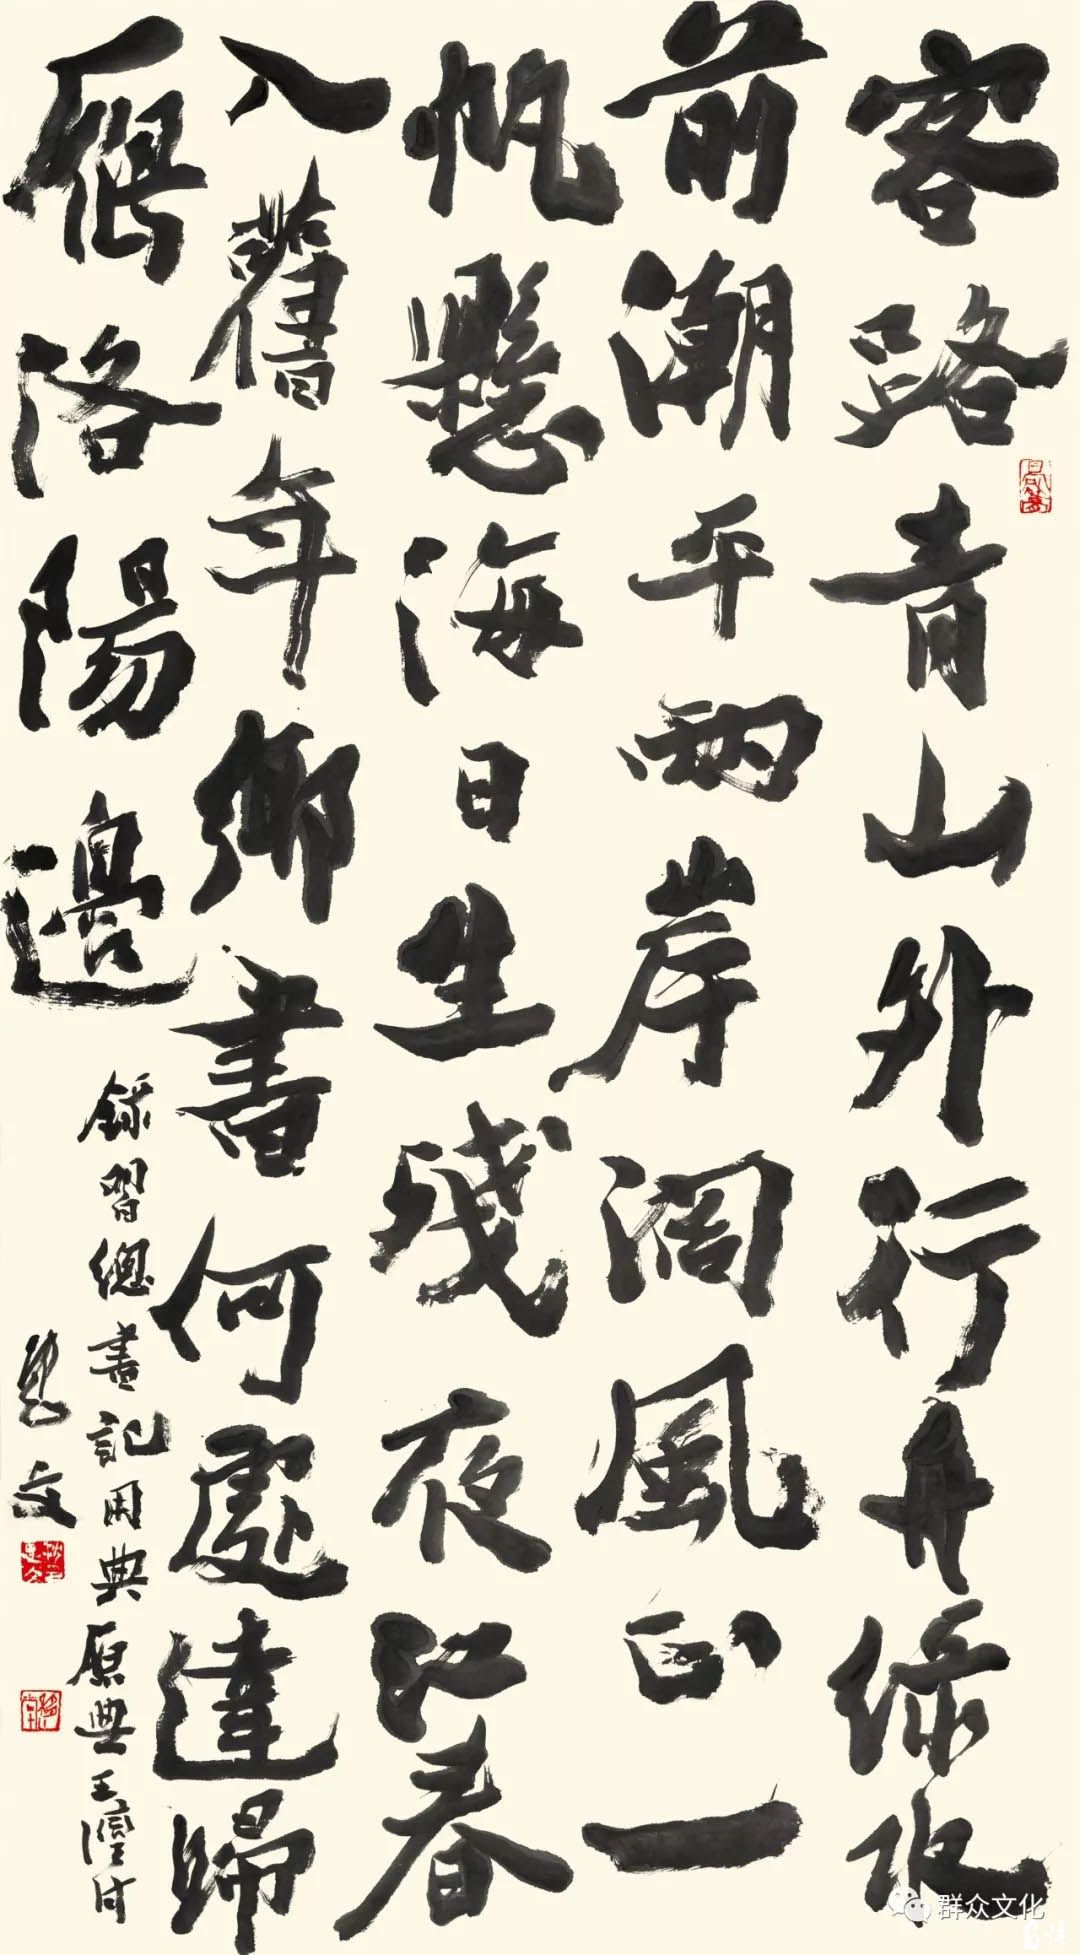 客路青山外行舟綠水
前潮平兩岸闊風正一
帆懸海日生殘夜江春
入舊年鄉書何處達歸
鴈洛陽邊
錄習總書記用典原典王灣詩
文
群众文化